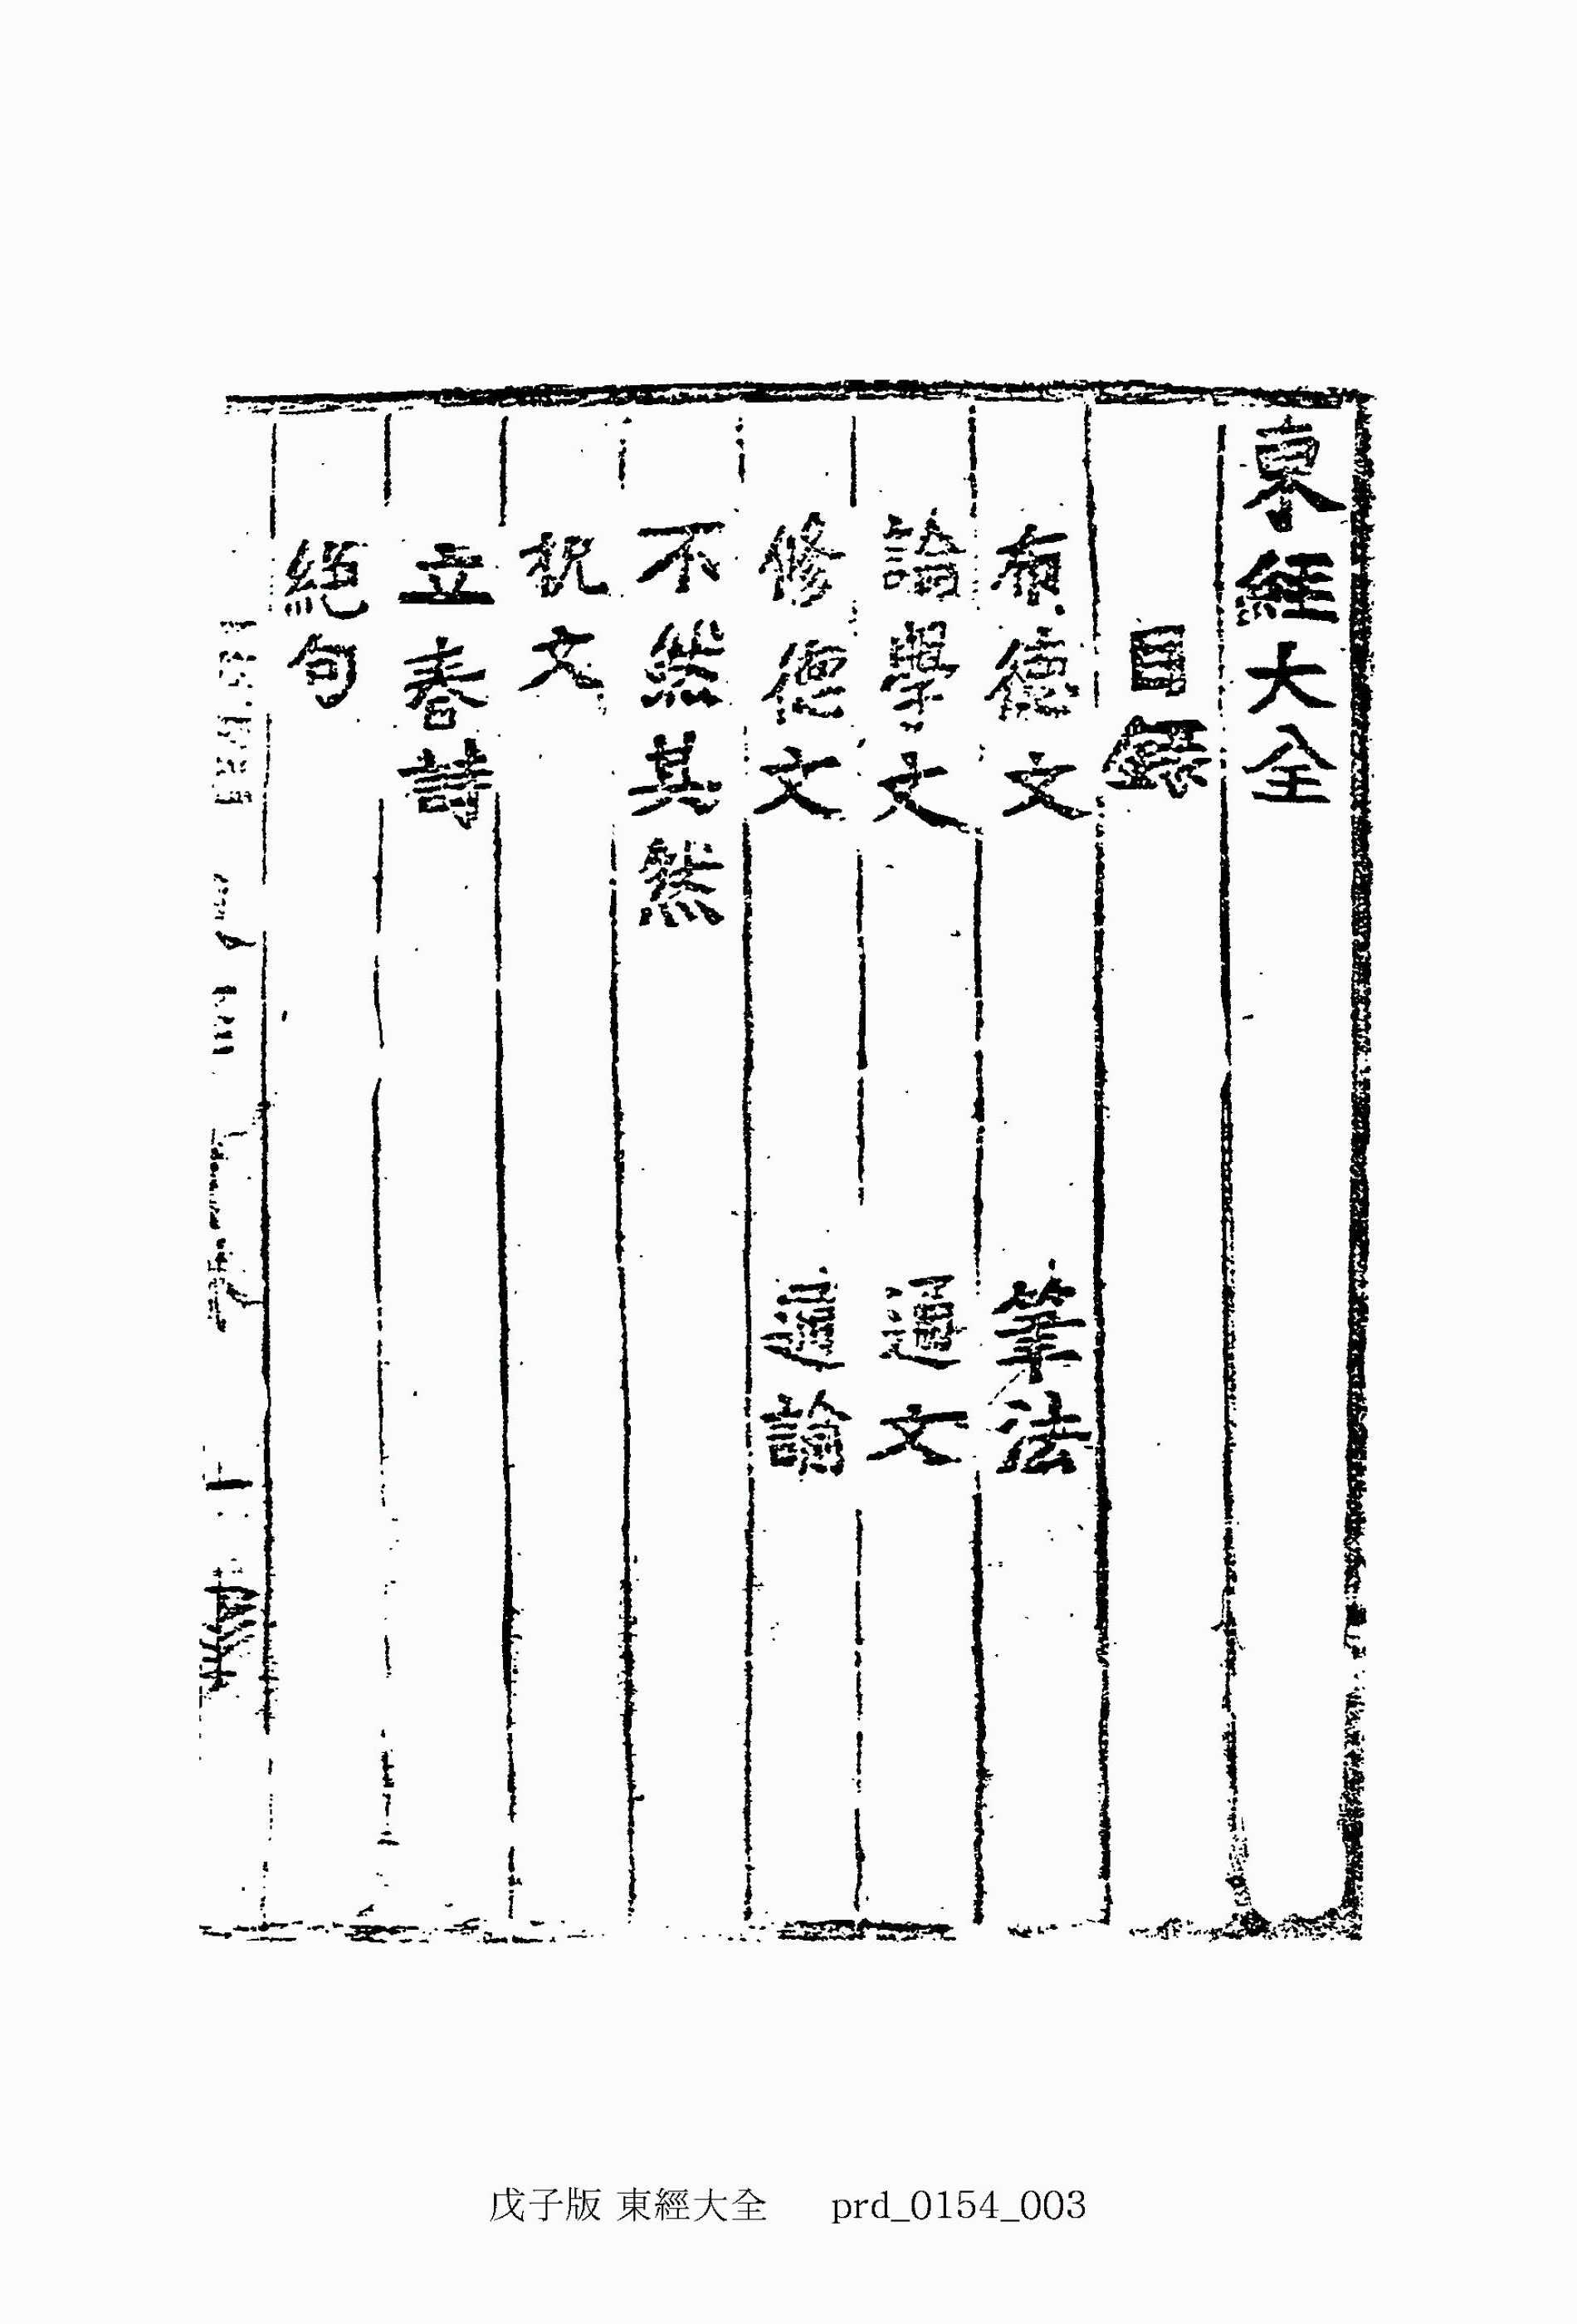 東經大全
目錄
布德文 筆法
論學文 通文
修德文 通諭
不然其然
祝文
立春詩
絕句
戊子版 東經大全 prd_0154_003